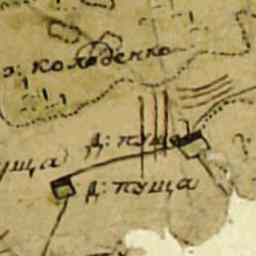 Колоденко
Д: пуща
уща
Д: пуща